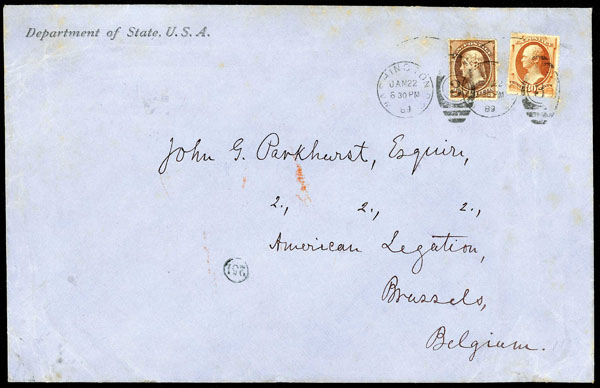 Department of State, U.S.A.
WASHINGTON
JAN 22
6 30 PM
89
John G. Parkhurst, Esquire,
2., 2., 2.,
American Legation,
Brussels,
Belgium.
251